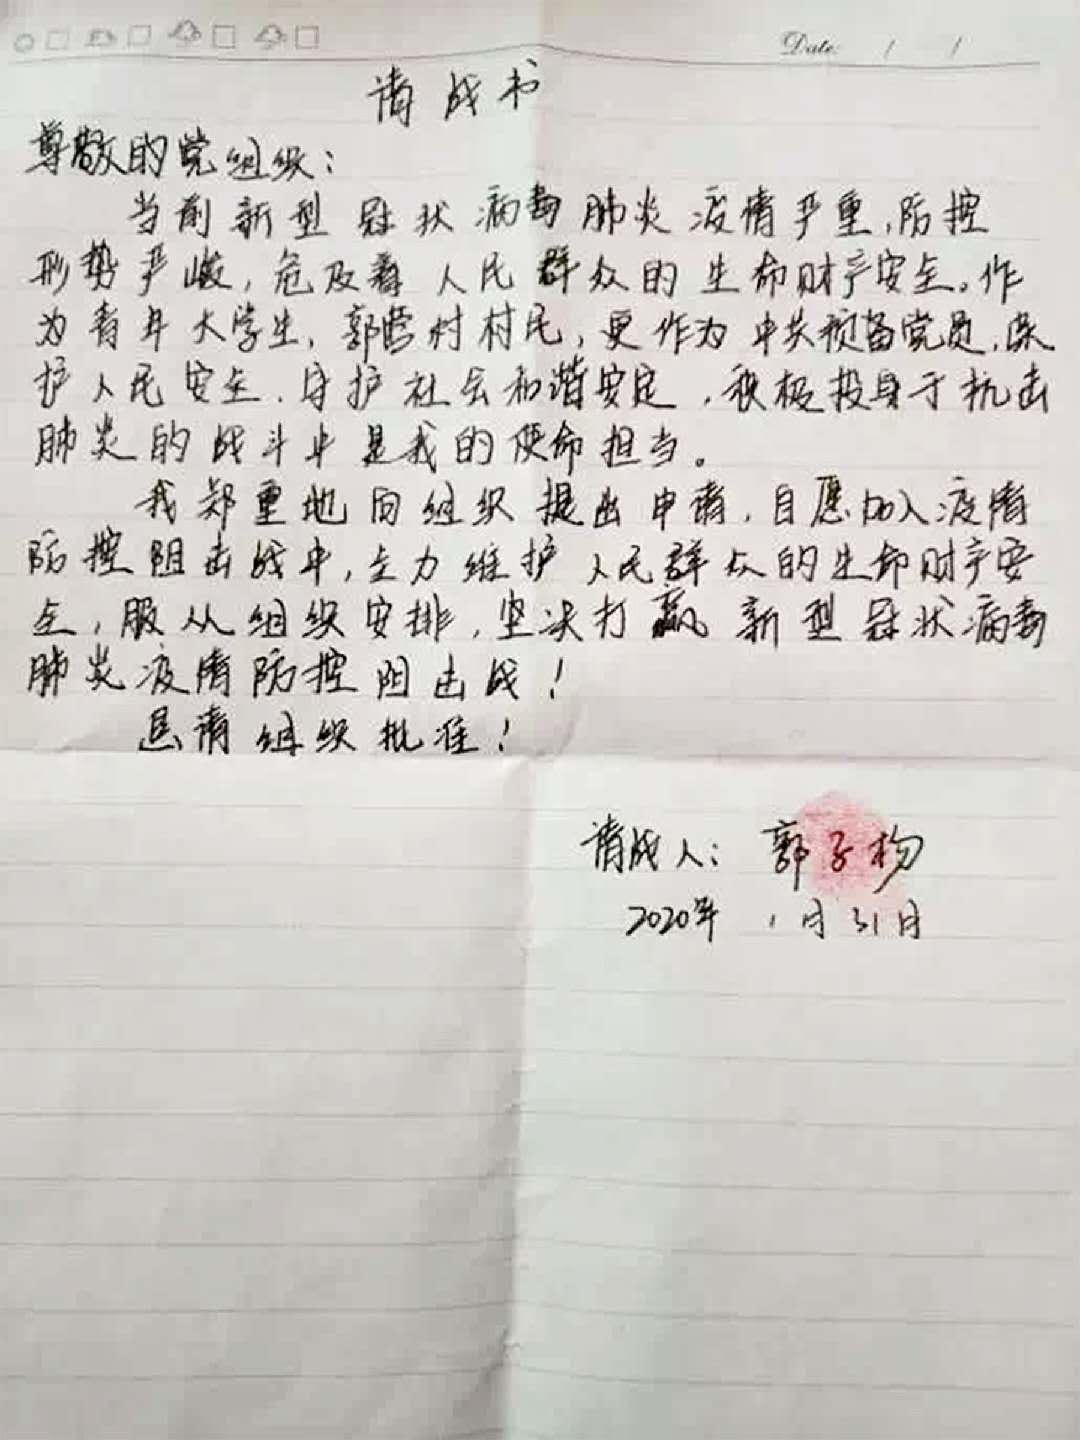 Date: / /
请战书
尊敬的党组织：
当前新型冠状病毒肺炎疫情严重，防控
形势严峻，危及着人民群众的生命财产安全。作
为青年大学生，郭营村村民，更作为中共预备党员，保
护人民安全、守护社会和谐安定，积极投身于抗击
肺炎的战斗中是我的使命担当。
我郑重地向组织提出申请，自愿加入疫情
防控阻击战中，全力维护人民群众的生命财产安
全，服从组织安排，坚决打赢新型冠状病毒
肺炎疫情防控阻击战！
恳请组织批准！
请战人：郭子杨
2020年 1月31日